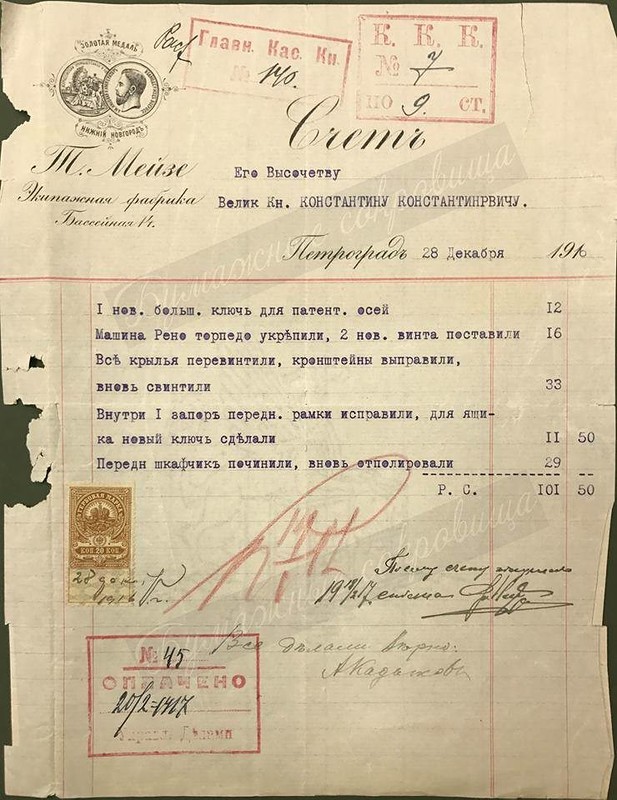 ЗОЛОТАЯ МЕДАЛЬ
НИЖНІЙ НОВГОРОДЪ
Главн. Кас. Кн.
№ 140.
К. К. К.
№ 7
ПО 9. СТ.
Счетъ
Т. Мейзе
Экипажная фабрика
Бассейная 14.
Его Высочетву
Велик Кн. КОНСТАНТИНУ КОНСТАНТИНРВИЧУ.
Петроградъ 28 Декабря 1916
I нов. больш. ключь для патент. осей 12
Машина Рено торпедо укрѣпили, 2 нов. винта поставили 16
Всѣ крылья перевинтили, кронштейны выправили,
вновь свинтили 33
Внутри I запоръ передн. рамки исправили, для ящи-
ка новый ключь сдѣлали II 50
Передн шкафчик починили, вновь отполировали 29
Р. С. IOI 50
ГЕРБОВАЯ МАРКА
КОП. 20 КОП.
28 дек.
1916 г.
По сему счету
19
Все дѣлали вѣрно.
№ 45
ОПЛАЧЕНО
20/2-1917
Управл. Дѣлами
Бумажные сокровища
Бумажные сокровища